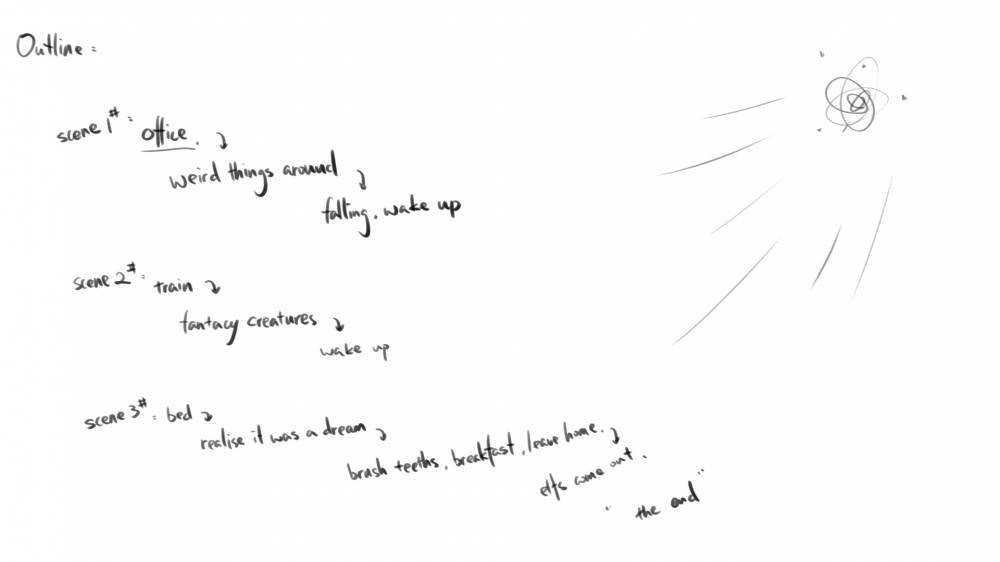 Outline :
scene 1# : office.
weird things around
falling, wake up
scene 2# : train
fantacy creatures
wake up
scene 3# : bed
realise it was a dream
brush teeths, breakfast, leave home.
elfs come out.
" the end "